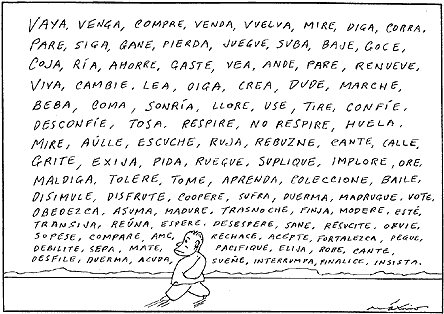 VAYA, VENGA, COMPRE, VENDA, VUELVA, MIRE, DIGA, CORRA,
PARE, SIGA, GANE, PIERDA, JUEGUE, SUBA, BAJE, GOCE,
COJA, RÍA, AHORRE, GASTE, VEA, ANDE, PARE, RENUEVE,
VIVA, CAMBIE, LEA, OIGA, CREA, DUDE, MARCHE,
BEBA, COMA, SONRÍA, LLORE, USE, TIRE, CONFÍE,
DESCONFÍE, TOSA. RESPIRE, NO RESPIRE, HUELA.
MIRE, AÚLLE, ESCUCHE, RUJA, REBUZNE, CANTE, CALLE,
GRITE, EXIJA, PIDA, RUEGUE, SUPLIQUE, IMPLORE, ORE,
MALDIGA, TOLERE, TOME, APRENDA, COLECCIONE, BAILE,
DISIMULE, DISFRUTE, COOPERE, SUFRA, DUERMA, MADRUGUE, VOTE,
OBEDEZCA, ASUMA, MADURE, TRASNOCHE, FINJA, MODERE, ESTÉ,
TRANSIJA, REÚNA, ESPERE, DESESPERE, SANE, RESUCITE, OBVIE,
SOPESE, COMPARE, AME, RECHACE, ACEPTE, FORTALEZCA, PEGUE,
DEBILITE, SEPA, MATE, PACIFIQUE, ELIJA, ROBE, CANTE,
DESFILE, DUERMA, ACUDA, SUEÑE, INTERRUMPA, FINALICE, INSISTA.